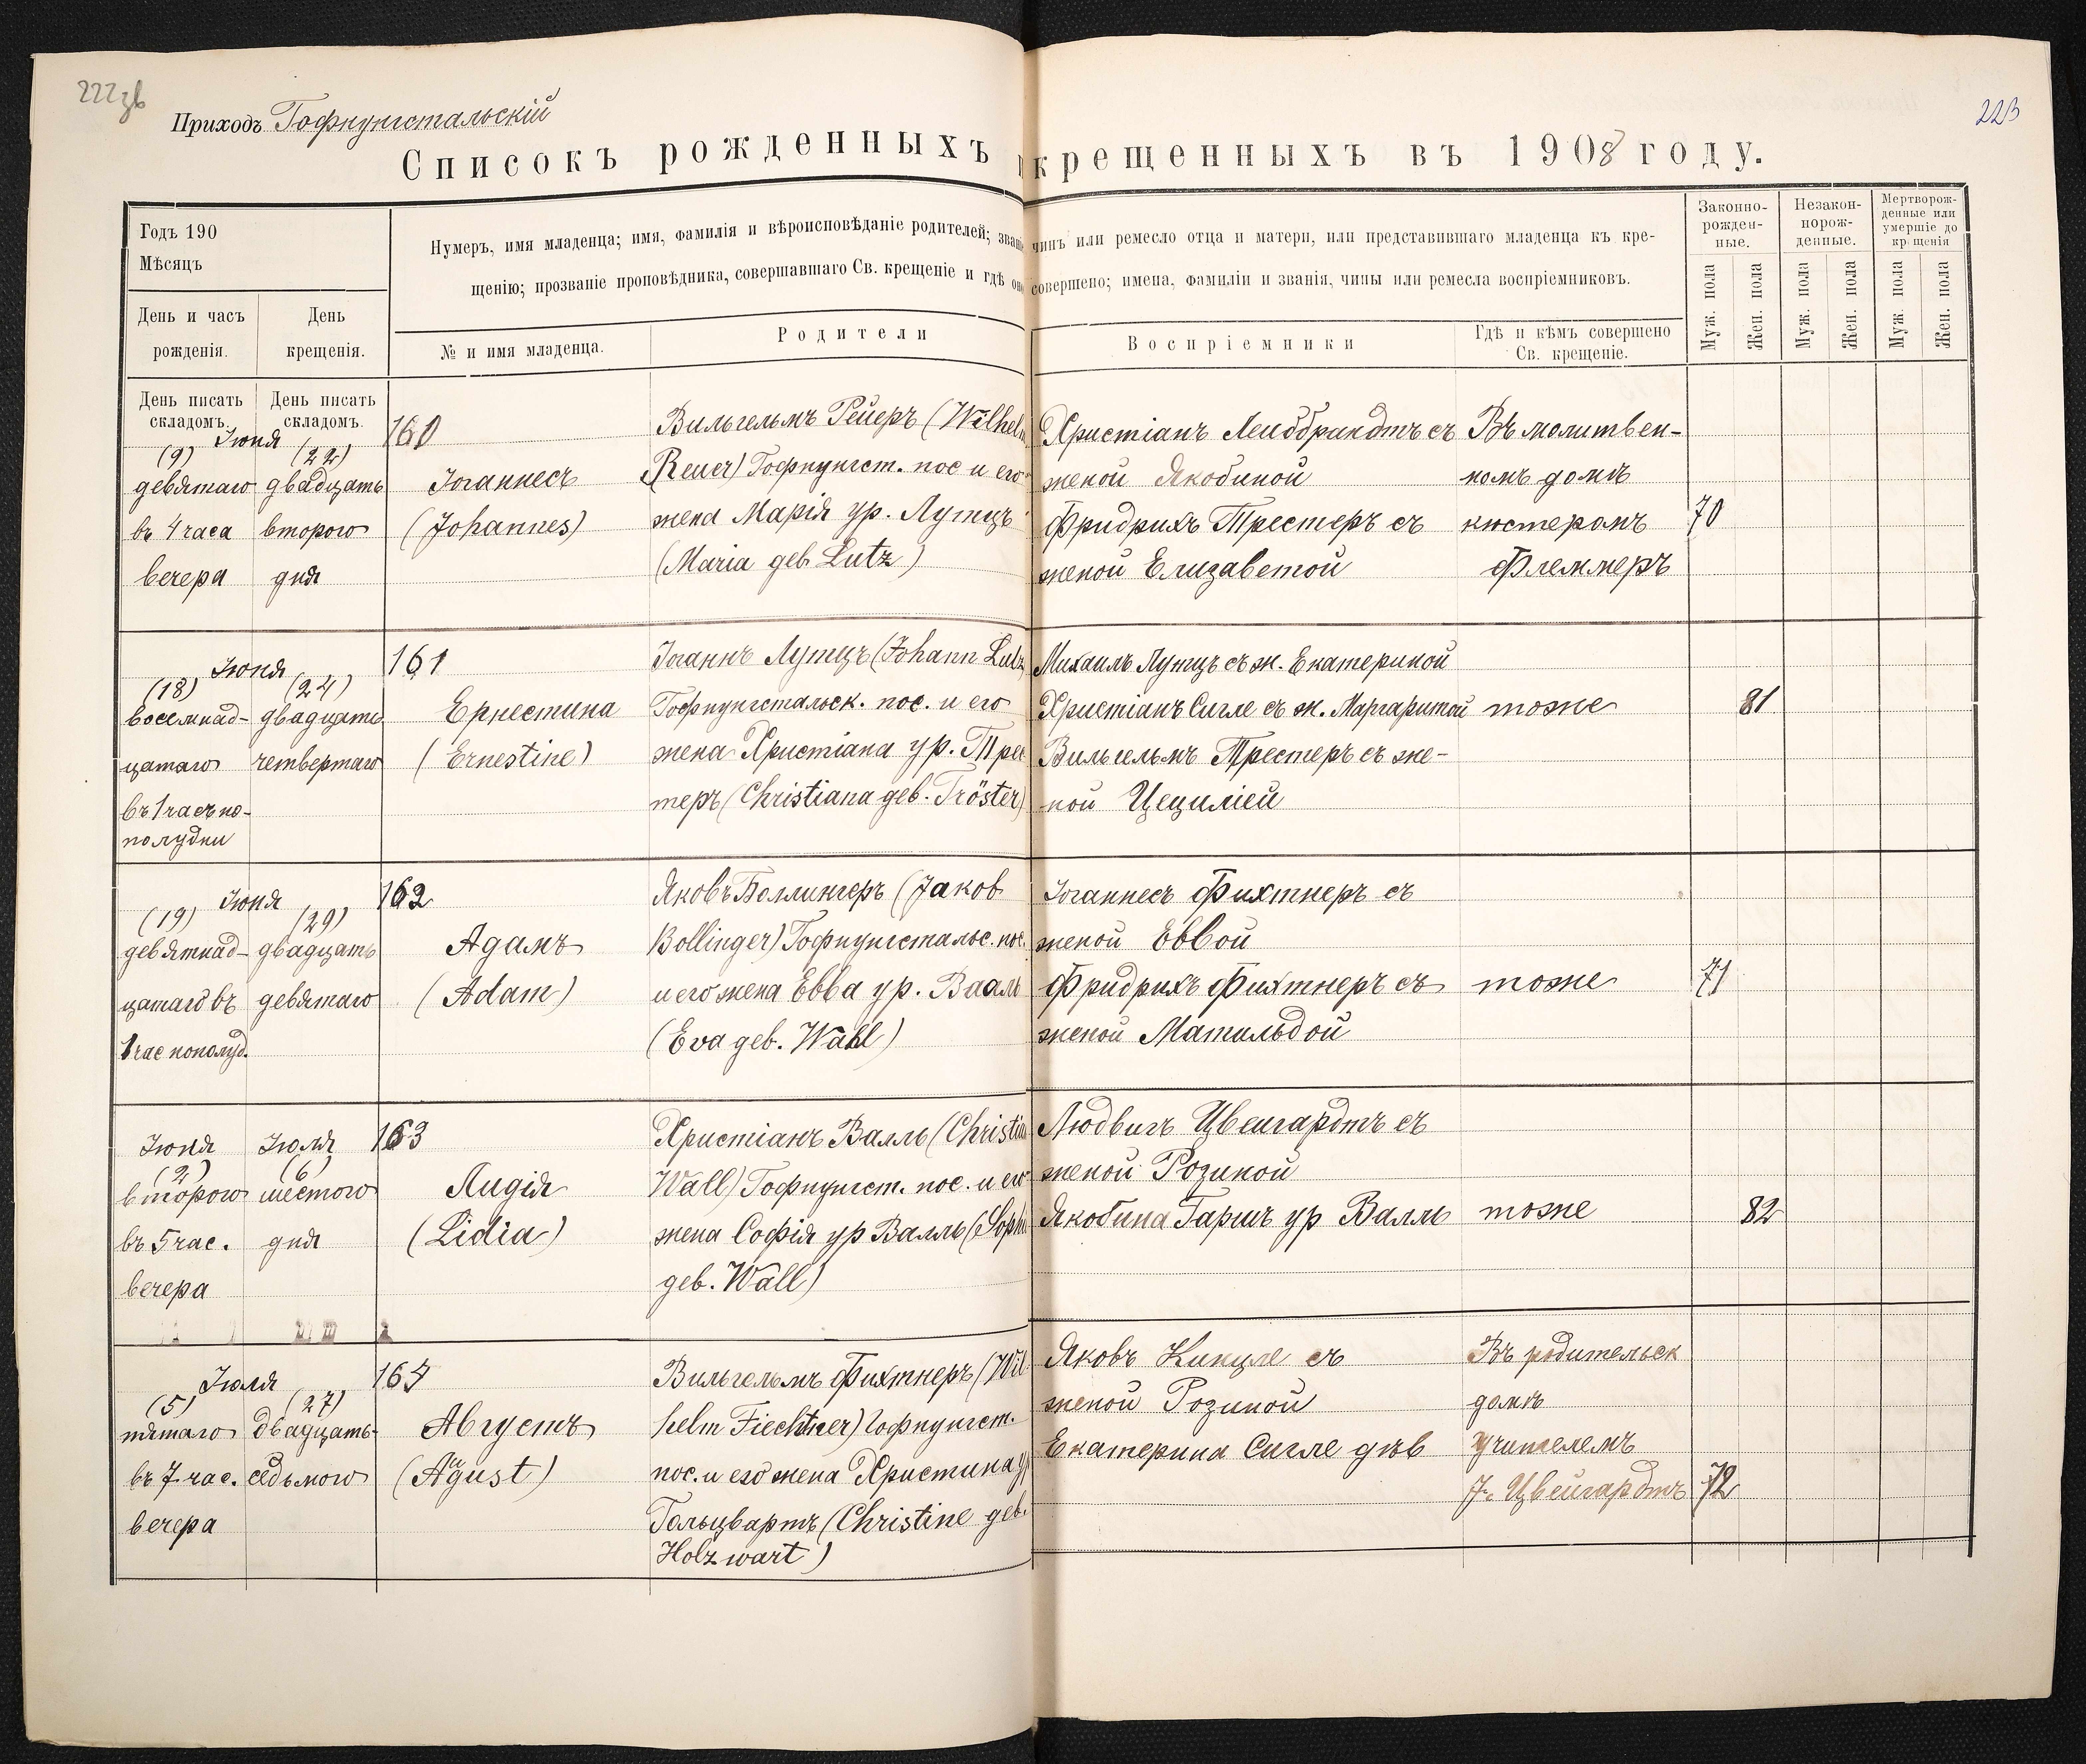 222 зв
223
Приходъ Гофнунгстальскій
Списокъ рожденныхъ крещенныхъ въ 1908 году.
Годъ 190
Мѣсяцъ
День и часъ рожденія.
День крещенія.
Нумеръ, имя младенца; имя, фамилія и вѣроисповѣданіе родителей; званіе чинъ или ремесло отца и матери, или представившаго младенца къ кре-
щенію; прозваніе проповѣдника, совершавшаго Св. крещеніе и гдѣ оно совершено; имена, фамиліи и званія, чины или ремесла воспріемниковъ.
№ и имя младенца.
Родители
Воспріемники
Гдѣ и кѣмъ совершено
Св. крещеніе.
Законно-
рожден-
ные.
Незакон-
норож-
денные.
Мертворож-
денные или
умершіе до
крещенія
Муж. пола
Жен. пола
Муж. пола
Жен. пола
Муж. пола
Жен. пола
День писать
складомъ.
День писать
складомъ.
Іюня
(9)
девятаго
въ 4 часа
вечера
(22)
двадцать
второго
дня
160
Іоганнесъ
(Johannes)
Вильгельмъ Рейеръ (Wilhelm
Reuer) Гофнунгст. пос и его
жена Марія ур. Лутцъ
(Maria geb. Lutz)
Христіанъ Леиббрандтъ съ
женой Якобиной
Фридрихъ Трестеръ съ
женой Елизаветой
Въ молитвен-
номъ домѣ
кюстеромъ
Флеммеръ
70
Іюня
(18)
восемнад-
цатаго
въ 1 часъ по-
полудни
(24)
двадцать
четвертаго
161
Ернестина
(Ernestine)
Іоганнъ Лутцъ (Johann Lutz
Гофнунгстальск. пос. и его
жена Христіана ур. Трес
теръ (Christiana geb. Tröster)
Михаилъ Лутцъ съ ж. Екатериной
Христіанъ Сигле съ ж. Маргаритой
Вильгельмъ Трестеръ съ же-
ной Цециліей
тоже
81
Іюня
(19)
девятнад-
цатаго въ
1 час пополуд.
(29)
двадцать
девятаго
162
Адамъ
(Adam)
Яковъ Боллингеръ (Jакоb
Bollinger) Гофнунгстальс. пос.
и его жена Евва ур. Вааль
(Eva geb. Wahl)
Іоганнесъ Фихтнеръ съ
женой Еввой
Фридрихъ Фихтнеръ съ
женой Матильдой
тоже
71
Іюня
(2)
второго
въ 5 час.
вечера
Іюля
(6)
шестого
дня
163
Лидія
(Lidia)
Христіанъ Валль (Christia
Wall) Гофнунгст. пос. и его
жена Софія ур Валль (Soph
geb. Wall)
Людвигъ Цвеигардтъ съ
женой Розиной
Якобина Гаршъ ур Валль
тоже
82
Іюля
(5)
пятаго
въ 7 час.
вечера
(27)
двадцать-
седьмого
164
Августъ
(August)
Вильгельмъ Фихтнеръ (Wil
helm Fiechtner) Гофнунгст.
пос. и его жена Христина ур
Гольцвартъ (Christine geb.
Holzwart)
Яковъ Кинцле съ
женой Розиной
Екатерина Сигле дѣв
Въ родительск
домѣ
учителемъ
Цвейгардтъ
72